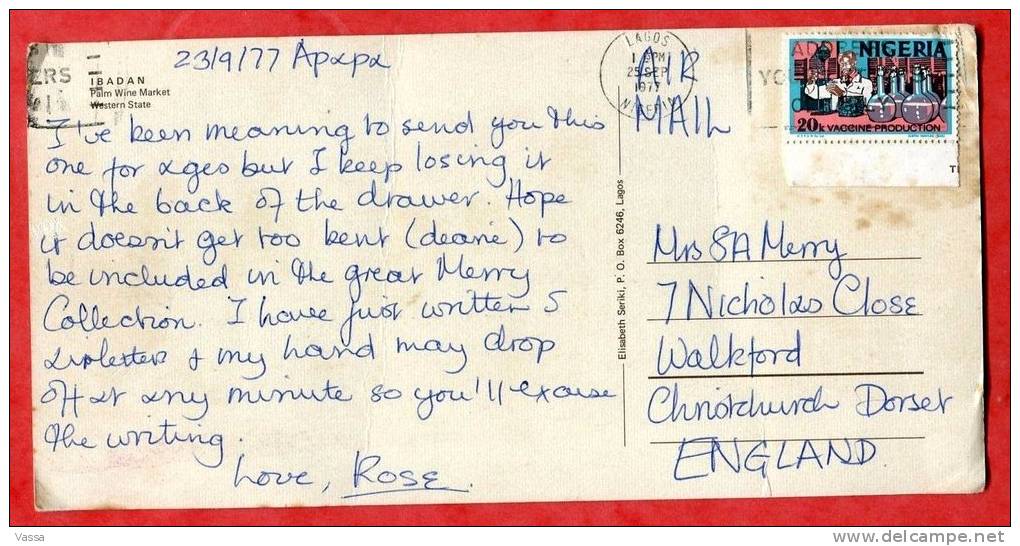 23/9/77 Apapa
IBADAN
Palm Wine Market
Western State
I've been meaning to send you this
one for ages but I keep losing it
in the back of the drawer. Hope
it doesn't get too bent (dearie) to
be included in the great Merry
Collection. I have just written 5
airletters & my hand may drop
off at any minute so you'll excuse
the writing.
Love, Rose.
Elisabeth Seriki, P. O. Box 6246, Lagos
LAGOS
25 SEP
1977
AIR
MAIL
NIGERIA
20k VACCINE PRODUCTION
Mrs SA Merry
7 Nicholas Close
Walkford
Christchurch Dorset
ENGLAND
Vassa
www.delcampe.net